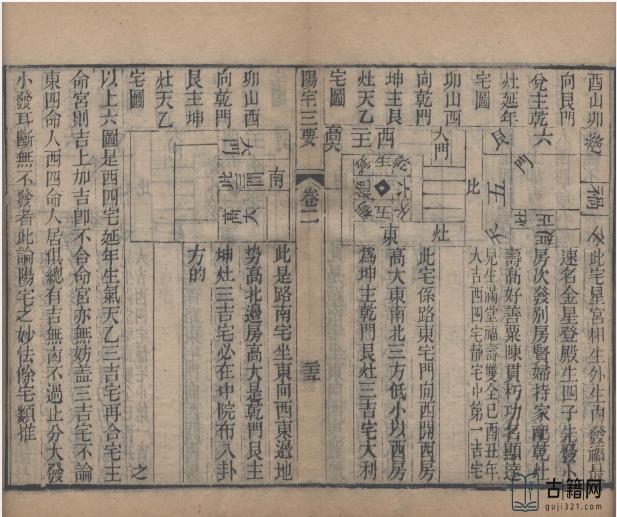 酉山卯
向艮門
兌主乾
灶延年
宅圖
六
門
五
正
禍
此宅星宮相生外生內發福最
速名金星登殿生四子先發小
房次發別房賢婦持家配乾灶
壽高好善粟陳貫朽功名顯達
兒生滿堂福壽雙全巳酉丑年
大吉西四宅靜宅中第一吉宅
卯山西
向乾門
坤主艮
灶天乙
宅圖
大門
西
主
高
比
灶
東
生
乾
六
五
此宅係路東宅門開西開西房
高大東南北三方低小以西房
為坤主乾門艮灶三吉宅大利
陽宅三要
卷二
三五
卯山西
向乾門
艮主坤
灶天乙
宅圖
大門
南
三間
高大
此是路南宅坐東向西東邊地
勢高北邊房高大是乾門艮主
坤灶三吉宅必在中院布八卦
方的
以上六圖是西四宅延年生氣天乙三吉宅再合宅主之
命宮則吉上加吉卽不合命宮亦無妨蓋三吉宅不論
東四命人西四命人居俱總有吉無凶不過止分大發
小發耳斷無不發者此論陽宅之妙法餘宅類推
古籍网
guji321.com